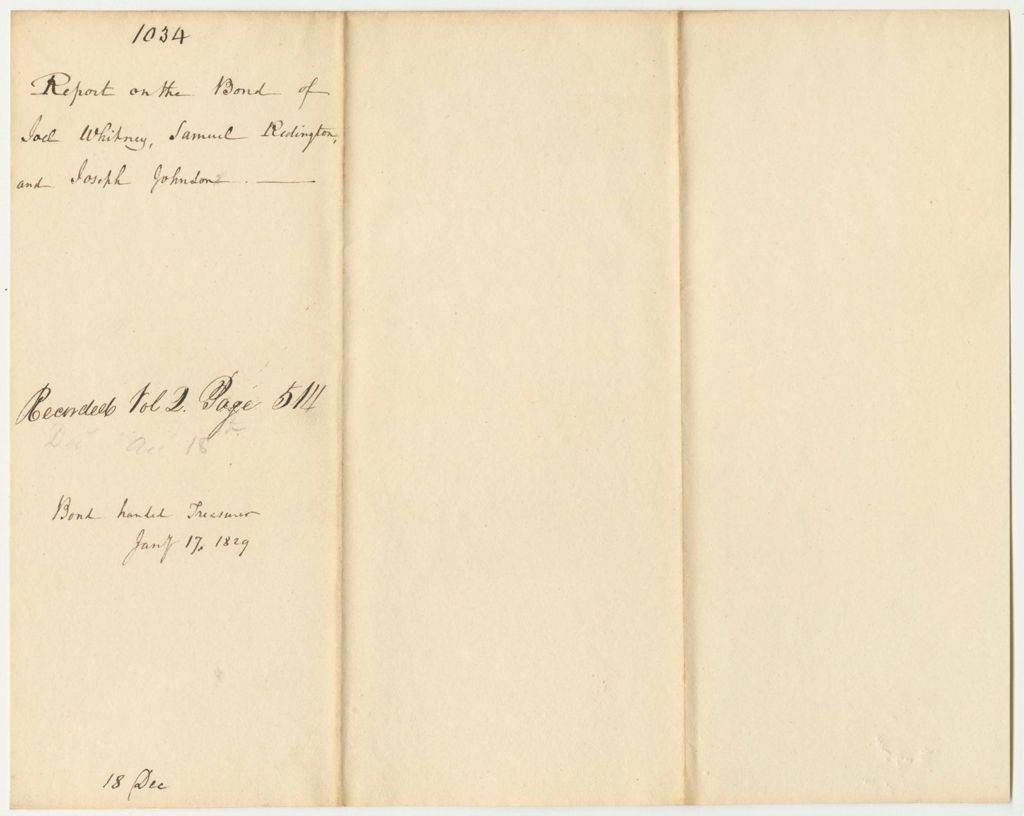 1034
Report on the Bond of
Joel Whitney, Samuel Redington,
and Joseph Johnson.
Recorded Vol 2. Page 514
18
Bond handed Treasurer
Jany 17, 1829
18 Dec